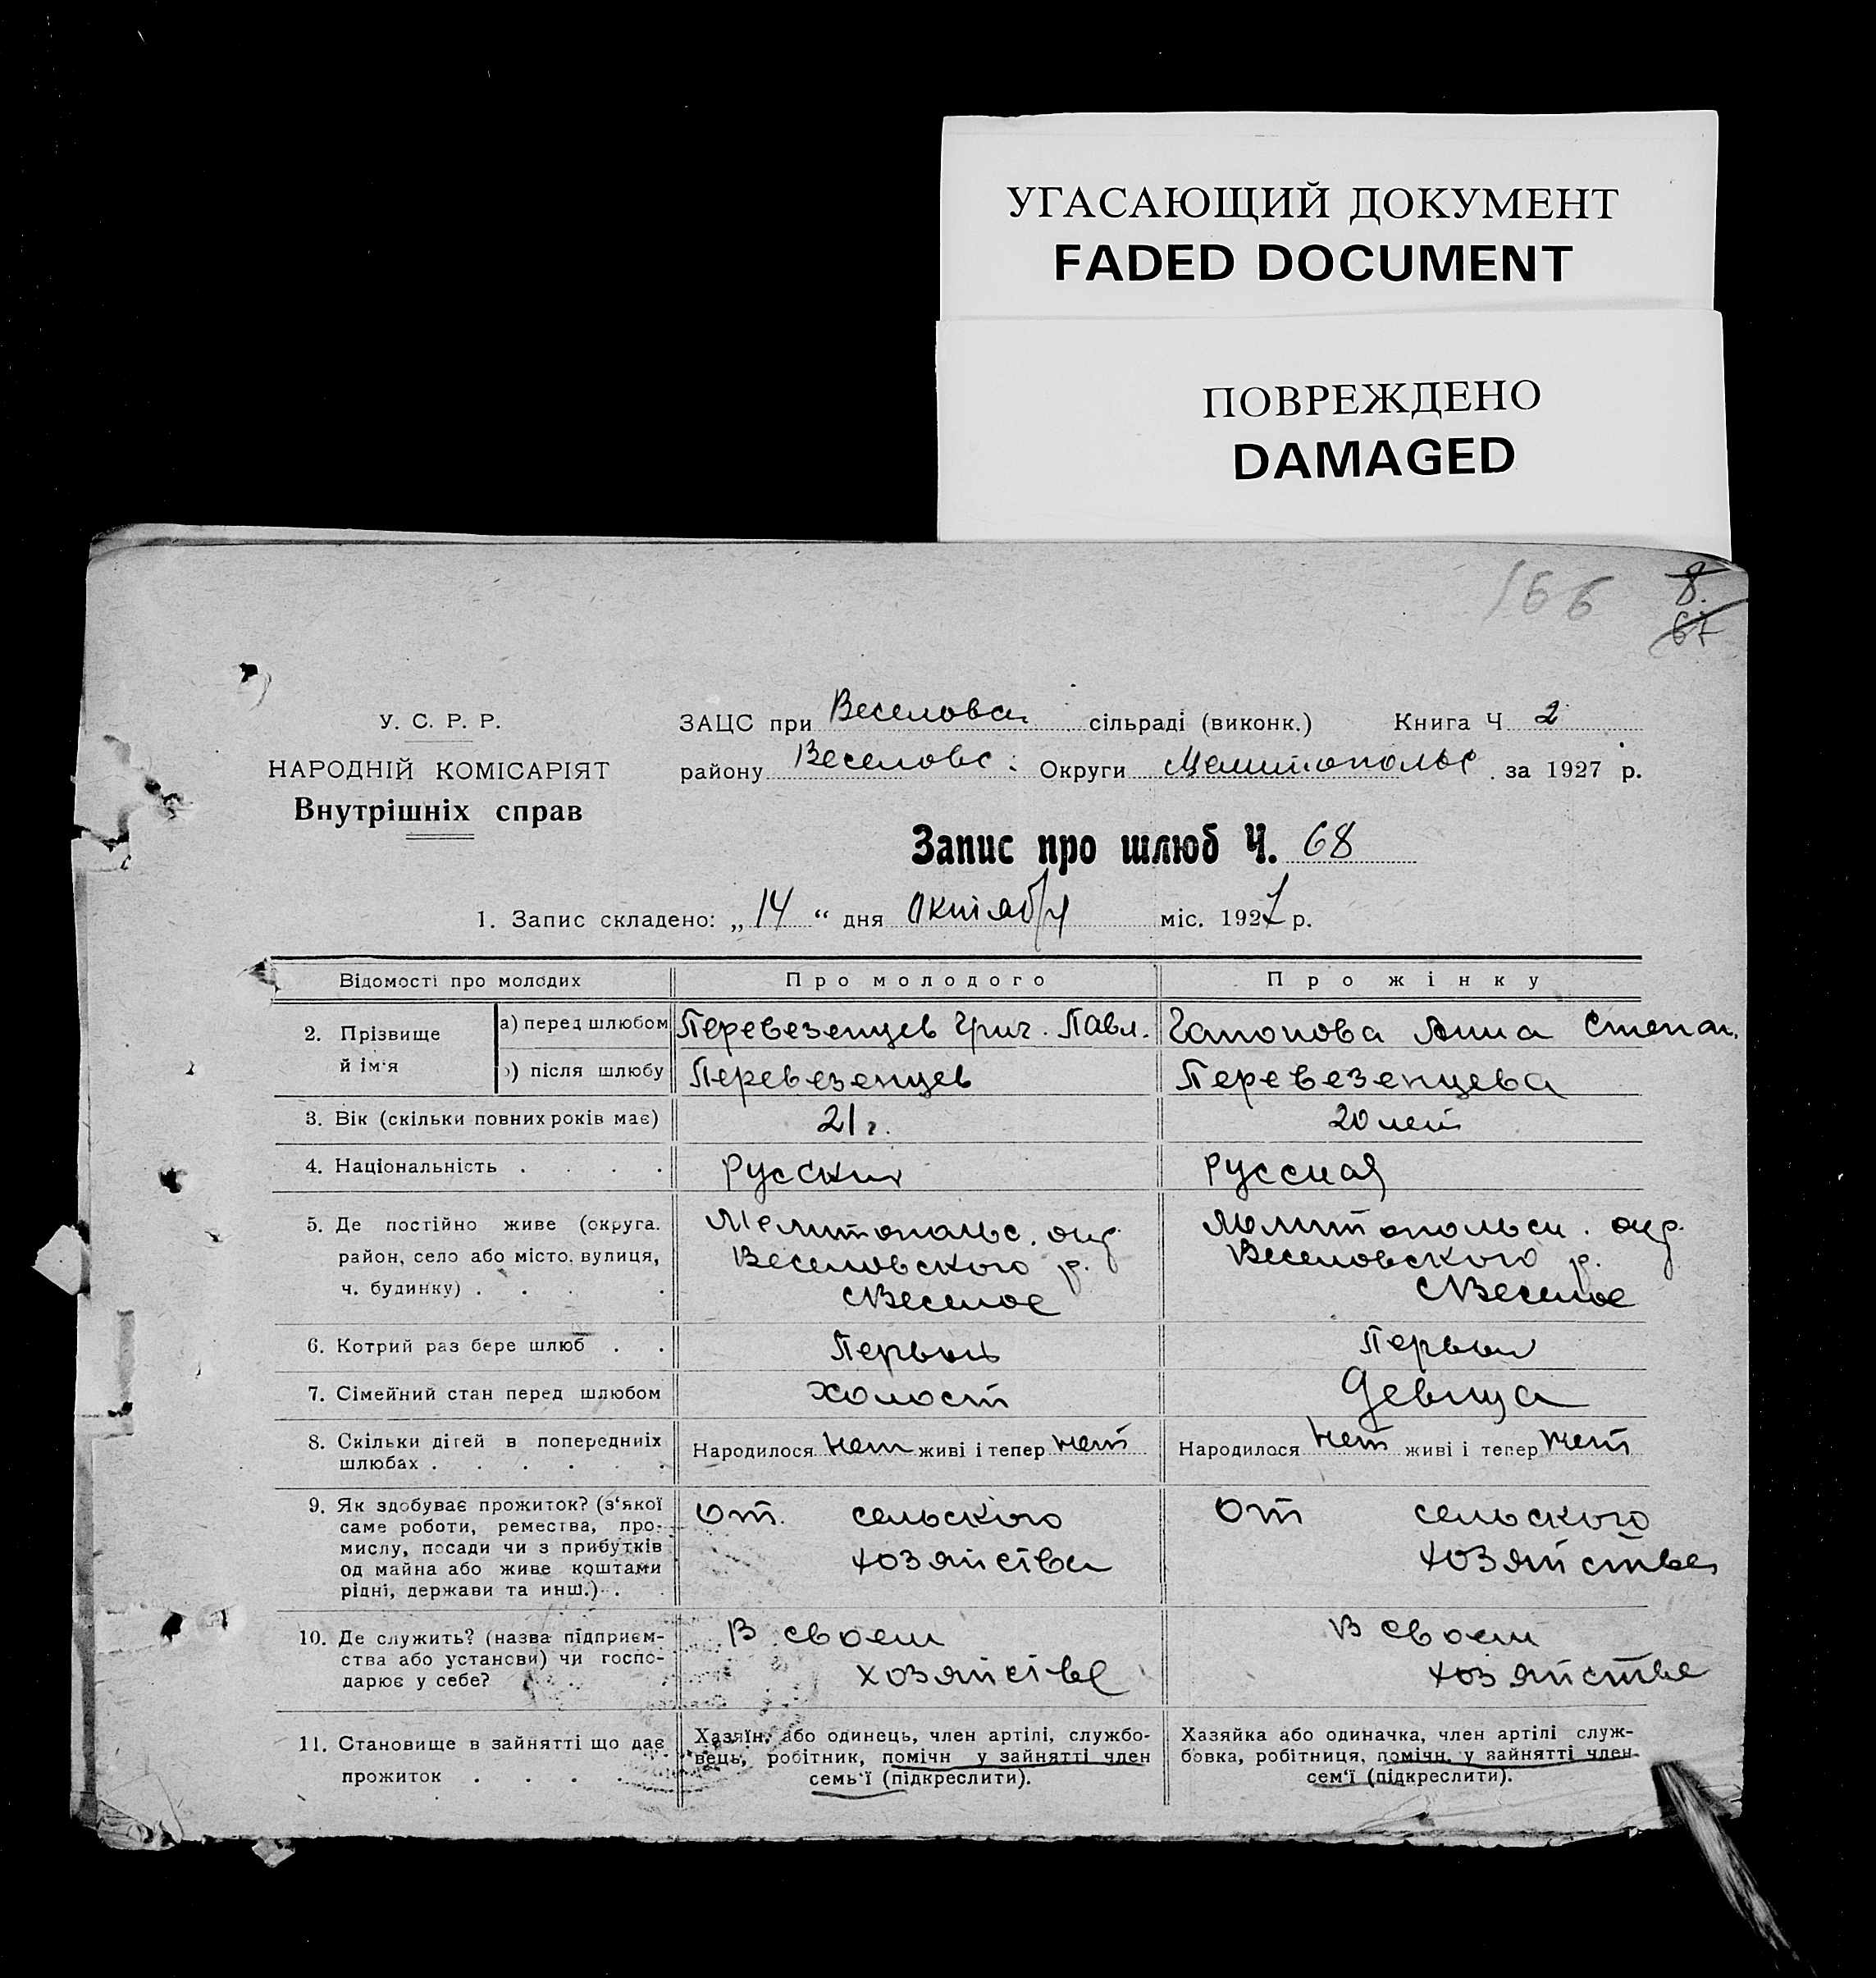 УГАСАЮЩИЙ ДОКУМЕНТ
FADED DOCUMENT
ПОВРЕЖДЕНО
DAMAGED
166
8.
67
У. С. Р. Р.
НАРОДНІЙ КОМІСАРІЯТ
Внутрішніх справ
ЗАЦС при Веселовск сільраді (виконк.) Книга Ч 2
району Веселовс. Округи Мелитопольс. за 1927 р.
Запис про шлюб Ч. 68
1. Запис складено: „14“ дня Октября міс. 1927 р.
Відомості про молодих Про молодого Про жінку
2. Прізвище й ім'я
а) перед шлюбом Перевезенцев Григ. Павл. Гапонова Анна Степан.
б) після шлюбу Перевезенцев Перевезенцева
3. Вік (скільки повних років має) 21 г. 20 лет
4. Національність . . . . Русский Русская
5. Де постійно живе (округа.
район, село або місто, вулиця,
ч. будинку) . . . .
Мелитопольс. окр.
Веселовского р.
с Веселое
Мелитопольск. окр.
Веселовского р.
с Веселое
6. Котрий раз бере шлюб . . Первый Первый
7. Сімейний стан перед шлюбом холост Девица
8. Скільки дітей в попередниіх
шлюбах . . . . . .
Народилося нет живі і тепер нет
Народилося нет живі і тепер нет
9. Як здобуває прожиток? (з'якої
саме роботи, ремества, про-
мислу, посади чи з прибутків
од майна або живе коштами
рідні, держави та инш.) . .
От. сельского
хозяйства
От сельского
хозяйства
10. Де служить? (назва підприєм-
ства або установи) чи госпо-
дарює у себе?
В своем
хозяйстве
В своем
хозяйстве
11. Становище в зайнятті що дає
прожиток . . . .
Хазяїн, або одинець, член артілі, службо-
вець, робітник, помічн у зайнятті член
семь'ї (підкреслити).
Хазяйка або одиначка, член артілі служ-
бовка, робітниця, помічн. у зайнятті член
сем'ї (підкреслити).